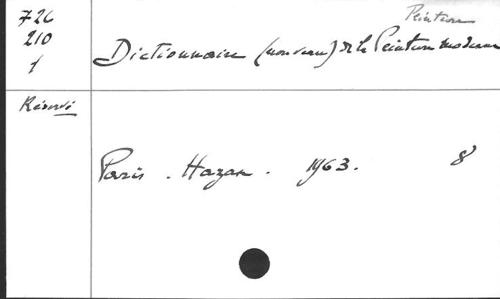 726
210
1
Peinture
Dictionnaire (nouveau) de la Peinture moderne
Réservé
Paris . Hazan . 1963. 8°